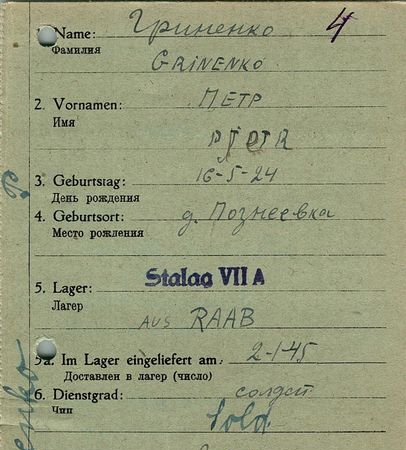 Name: Гриненко 4
Фамилия
GRINENKO
2. Vornamen: ПЕТР
Имя
PJOTR
3. Geburtstag: 16-5-24
День рождения
4. Geburtsort: д. Позднеевка
Место рождения
5. Lager: Stalag VII A
Лагер
aus RAAB
5a. Im Lager eingeliefert am: 2-1-45
Доставлен в лагер (число)
6. Dienstgrad: солдат
Чин
Sold.